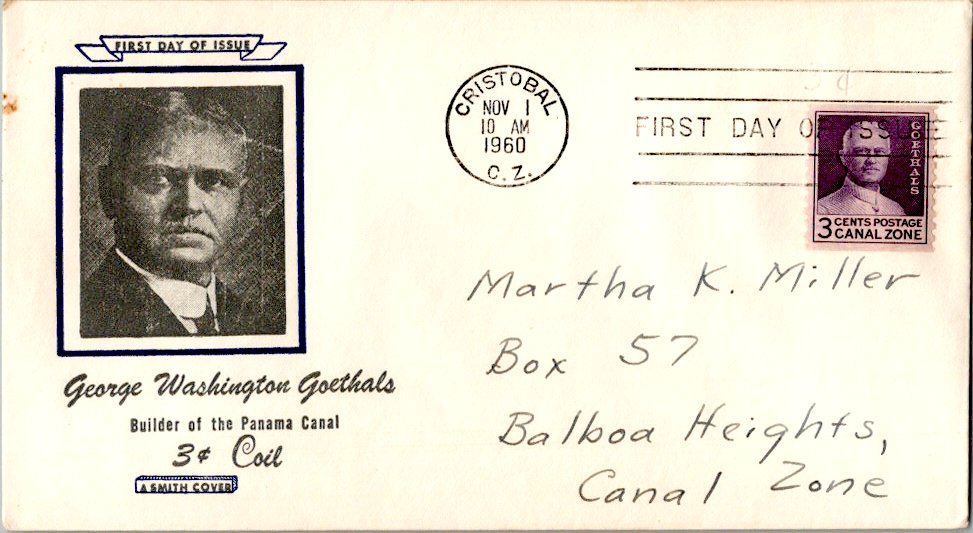 FIRST DAY OF ISSUE
George Washington Goethals
Builder of the Panama Canal
3¢ Coil
A SMITH COVER
CRISTOBAL
NOV 1
10 AM
1960
C. Z.
FIRST DAY OF ISSUE
GOETHALS
3 CENTS POSTAGE
CANAL ZONE
Martha K. Miller
Box 57
Balboa Heights,
Canal Zone